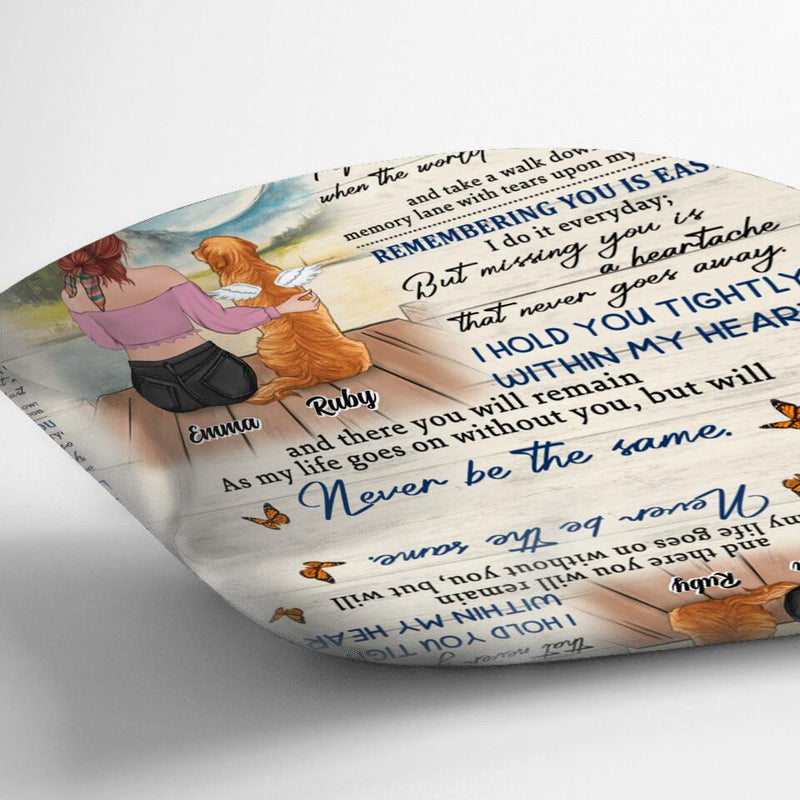 when the world
and take a walk down
memory lane with tears upon my
REMEMBERING YOU IS EAS
I do it everyday;
But missing you is
a heartache
that never goes away.
I HOLD YOU TIGHTLY
WITHIN MY HEART
and there you will remain
As my life goes on without you, but will
Never be the same.
Emma
Ruby
Never be the same.
my life goes on without you, but will
and there you will remain
WITHIN MY HEAR
I HOLD YOU TIG
that never g
Ruby